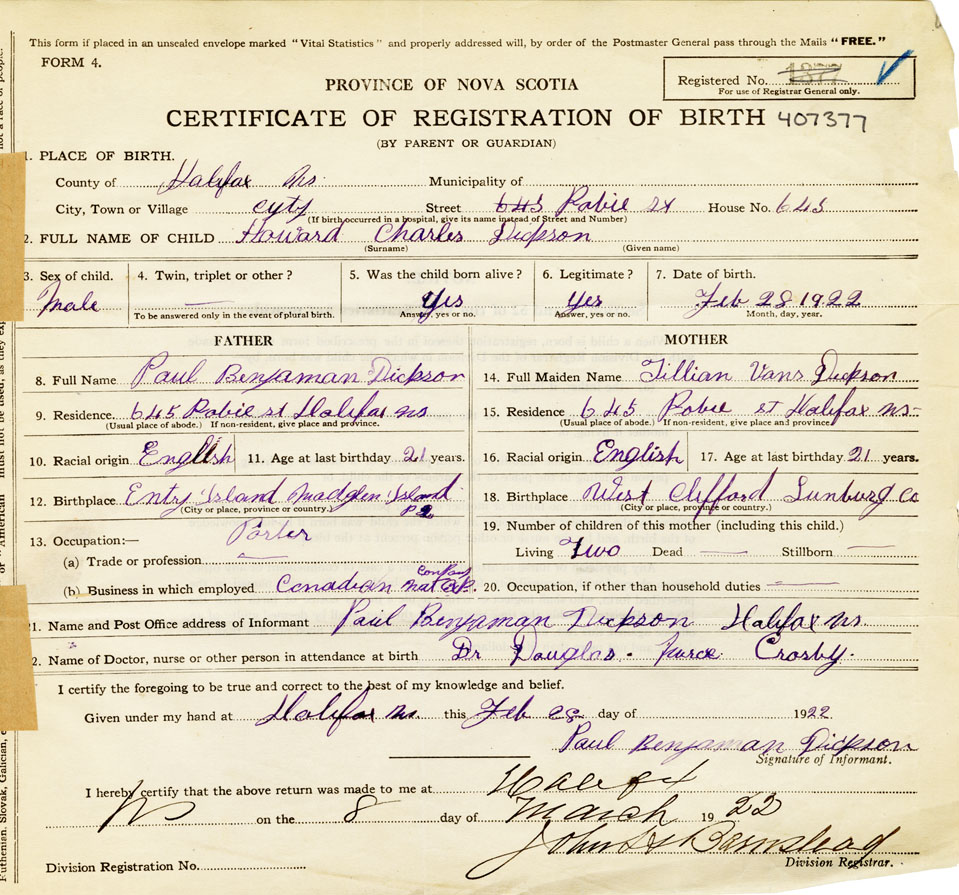 This form if placed in an unsealed envelope marked "Vital Statistics" and properly addressed will, by order of the Postmaster General pass through the Mails "FREE."
FORM 4.
Registered No. 1877
For use of Registrar General only.
PROVINCE OF NOVA SCOTIA
CERTIFICATE OF REGISTRATION OF BIRTH 407377
(BY PARENT OR GUARDIAN)
1. PLACE OF BIRTH.
County of Halifax Ns. Municipality of
City, Town or Village cyty Street 645 Robie st House No. 645
(If birth occurred in a hospital, give its name instead of Street and Number)
2. FULL NAME OF CHILD Howard Charles Dickson
(Surname) (Given name)
3. Sex of child. 4. Twin, triplet or other? 5. Was the child born alive? 6. Legitimate? 7. Date of birth.
Male — Yes Yes Feb 28 1922
To be answered only in the event of plural birth. Answer, yes or no. Answer, yes or no. Month, day, year.
FATHER MOTHER
8. Full Name Paul Benjaman Dickson 14. Full Maiden Name Tillian Vans Dickson
9. Residence. 645 Robie st Halifax Ns 15. Residence 645 Robie st Halifax Ns-
(Usual place of abode.) If non-resident, give place and province. (Usual place of abode.) If non-resident, give place and province.
10. Racial origin English 11. Age at last birthday 21 years. 16. Racial origin English 17. Age at last birthday 21 years.
12. Birthplace Entry Island Madglen Island 18. Birthplace West Clifford Lunburg Co
(City or place, province or country.) (City or place, province or country.)
13. Occupation:— Porter 19. Number of children of this mother (including this child.)
(a) Trade or profession — Living Two Dead — Stillborn —
(b) Business in which employed Canadian Nat 20. Occupation, if other than household duties —
21. Name and Post Office address of Informant Paul Benjaman Dickson Halifax Ns.
22. Name of Doctor, nurse or other person in attendance at birth Dr Douglas. Nurce Crosby.
I certify the foregoing to be true and correct to the best of my knowledge and belief.
Given under my hand at Halifax Ns this Feb 28 day of 1922
Paul Benjaman Dickson
Signature of Informant.
I hereby certify that the above return was made to me at Halifax
NS on the 8 day of March 1922
John
Division Registration No. Division Registrar.